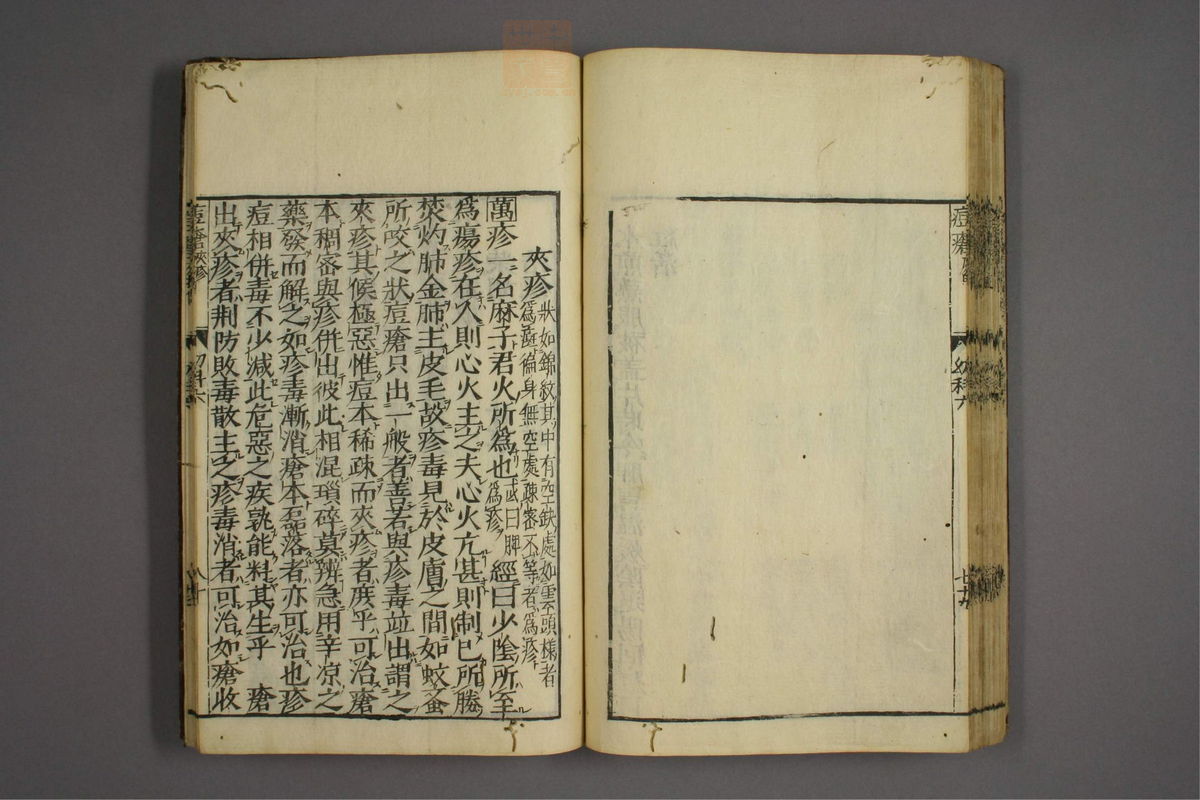 痘瘡
幼科六
七十九
夾疹
狀如錦紋其中有空缺處如雲頭樣者
爲 徧身無空處疎密不等者爲疹
萬疹一名麻子君火所爲也或曰脾爲疹經曰少陰所至
爲瘍疹在人則心火主之夫心火亢甚則制已所勝
焚灼肺金肺主皮毛故疹毒見於皮膚之間如蚊蚤
所咬之狀痘瘡只出一般者善若與疹毒竝出謂之
夾疹其候極惡惟痘本稀疎而夾疹者庶乎可治瘡
本稠密與疹併出彼此相混瑣碎莫辨急用辛凉之
藥發而解之如疹毒漸消瘡本磊落者亦可治也疹
痘相併毒不少減此危惡之疾孰能料其生乎 瘡
出夾疹者荆防敗毒散主之疹毒消者可治如瘡收
痘瘡夾疹
幼科六
八十